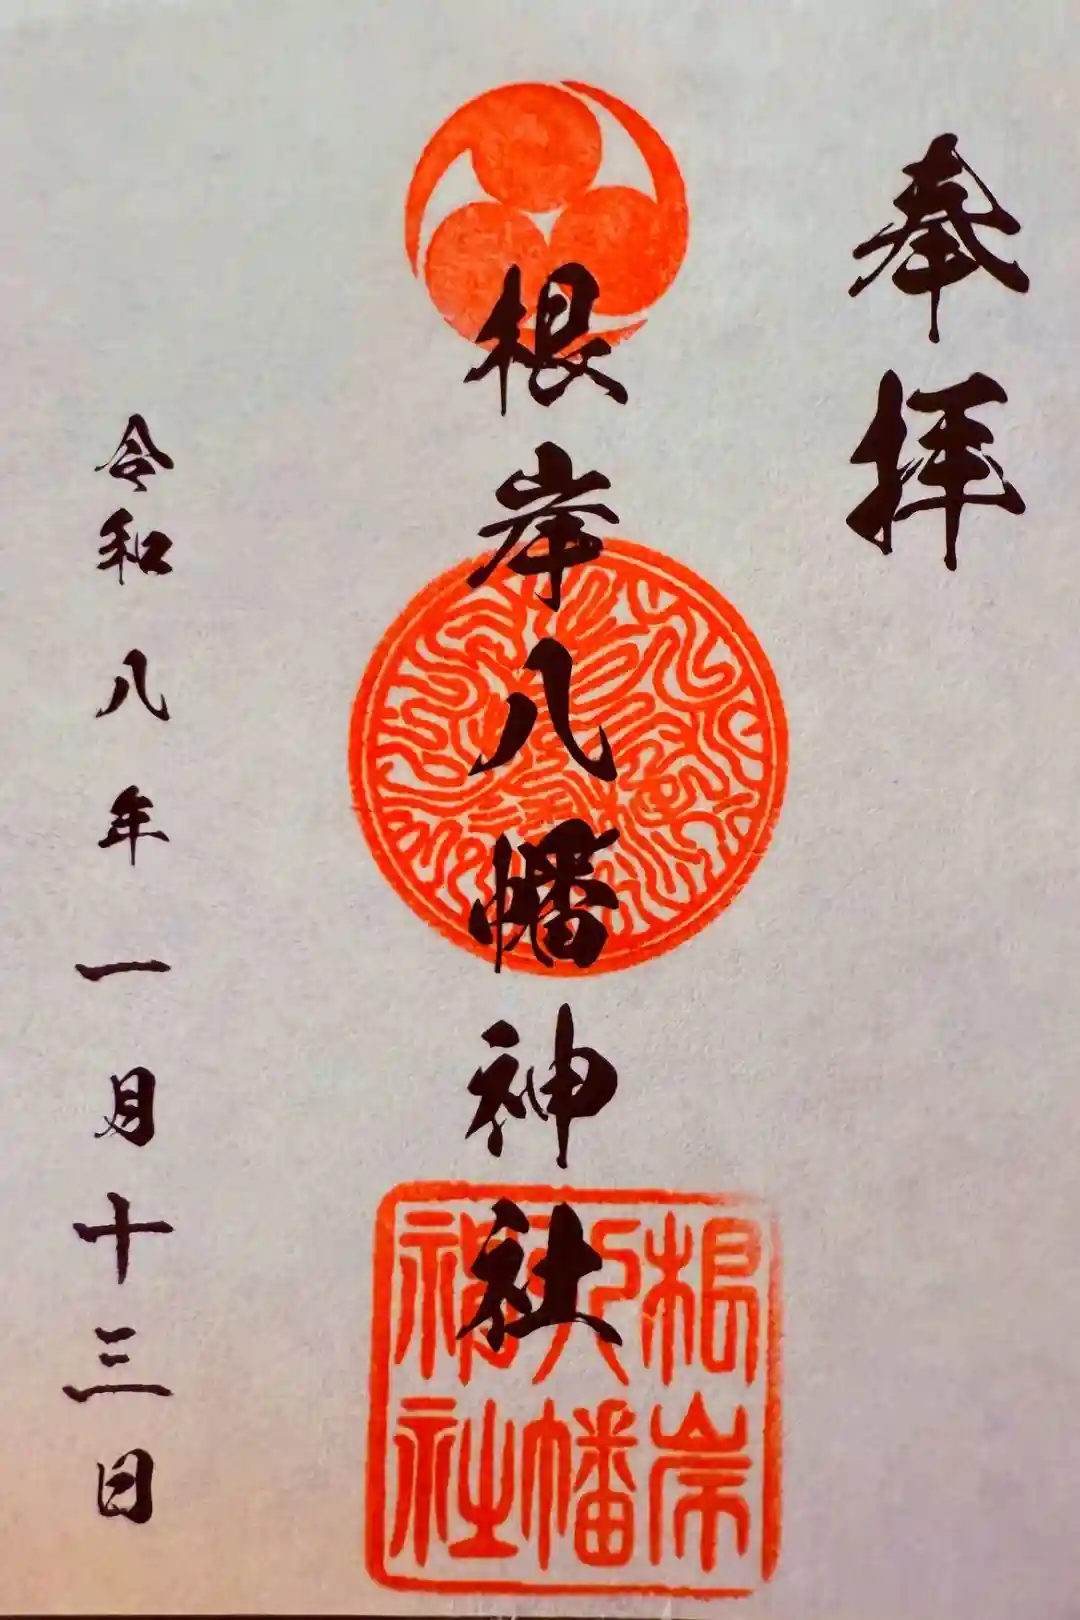 奉拝
根岸八幡神社
令和八年一月十三日
根岸
八幡
神社